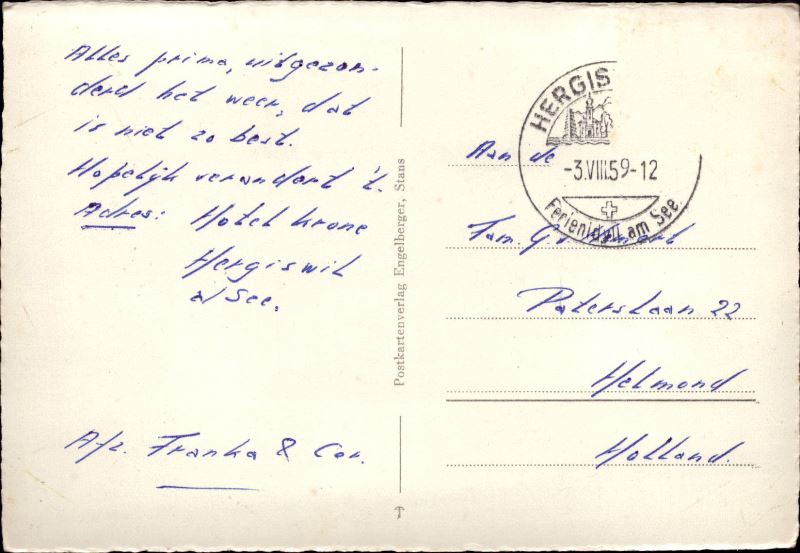 Alles prima, uitgezon-
derd het weer, dat
is niet zo best.
Hopelijk verandert 't.
Adres: Hotel Krone
Hergiswil
a/See.
Afz. Franka & Cor.
Postkartenverlag Engelberger, Stans
HERGIS
-3.VIII.59-12
Ferienidyll am See
Aan de
Fam. G. v.
Paterslaan 22
Helmond
Holland.